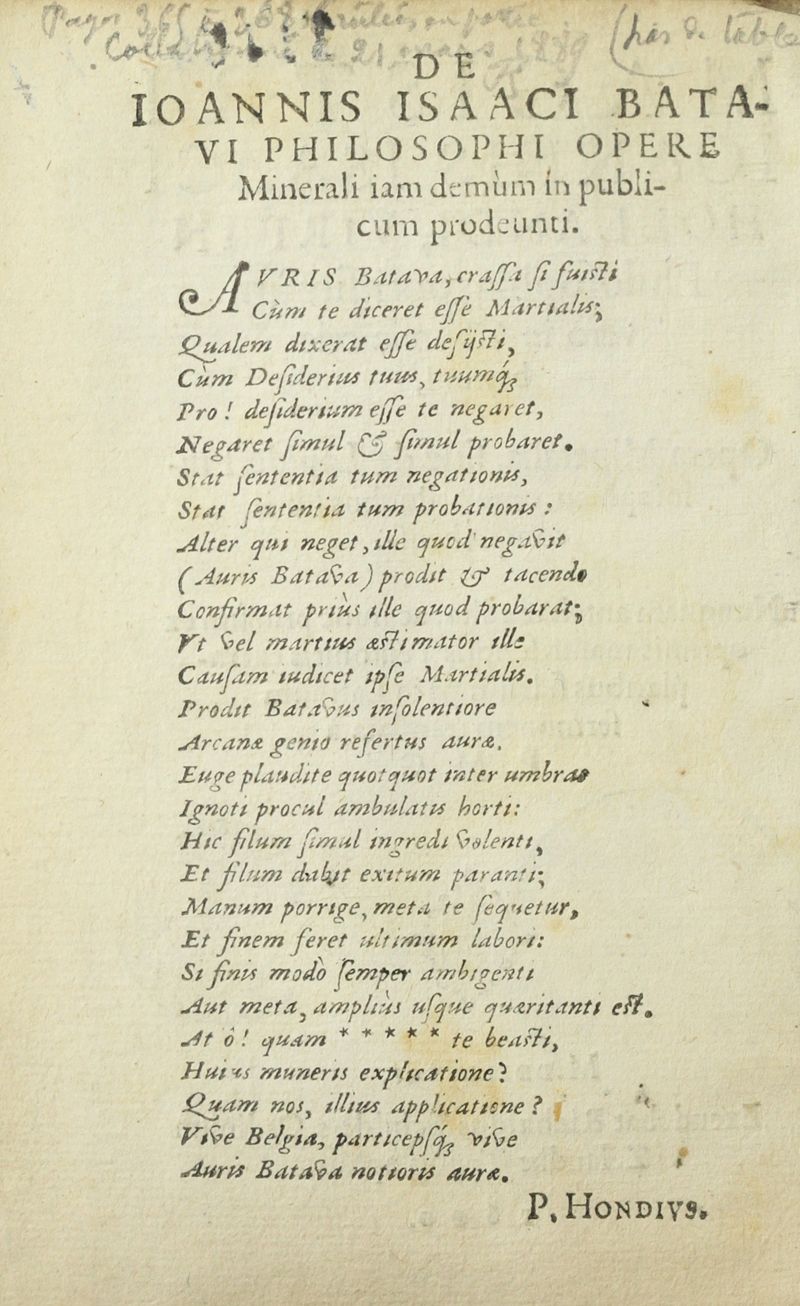 Pages 365 à 368 brulées en partie (pas de table
DE
IOANNIS ISAACI BATA-
VI PHILOSOPHI OPERE
Minerali iam demùm in publi-
cum prodeunti.
AVRIS Batava, craſſa ſi fuiſti
Cùm te diceret eſſe Martialis;
Qualem dixerat eſſe deſijſti,
Cùm Deſiderius tuus, tuumq́;
Pro! deſiderium eſſe te negaret,
Negaret ſimul & ſimul probaret.
Stat ſententia tum negationis,
Stat ſententia tum probationis :
Alter qui neget, ille quod negavit
(Auris Batava) prodit & tacendo
Confirmat priùs ille quod probarat;
Vt vel martius æſtimator ille
Cauſam iudicet ipſe Martialis.
Prodit Batavus inſolentiore
Arcanæ genio refertus auræ.
Euge plaudite quotquot inter umbras
Ignoti procul ambulatis horti:
Hic filum ſimul ingredi volenti,
Et filum dabit exitum paranti;
Manum porrige, meta te ſequetur,
Et finem feret ultimum labori:
Si finis modò ſemper ambigenti
Aut meta, ampliùs uſque quæritanti eſt.
At ô! quam * * * * * te beaſti,
Huius muneris explicatione?
Quam nos, illius applicatione?
Vive Belgia, particepſq́; vive
Auris Batava notioris auræ.
P. HONDIVS.